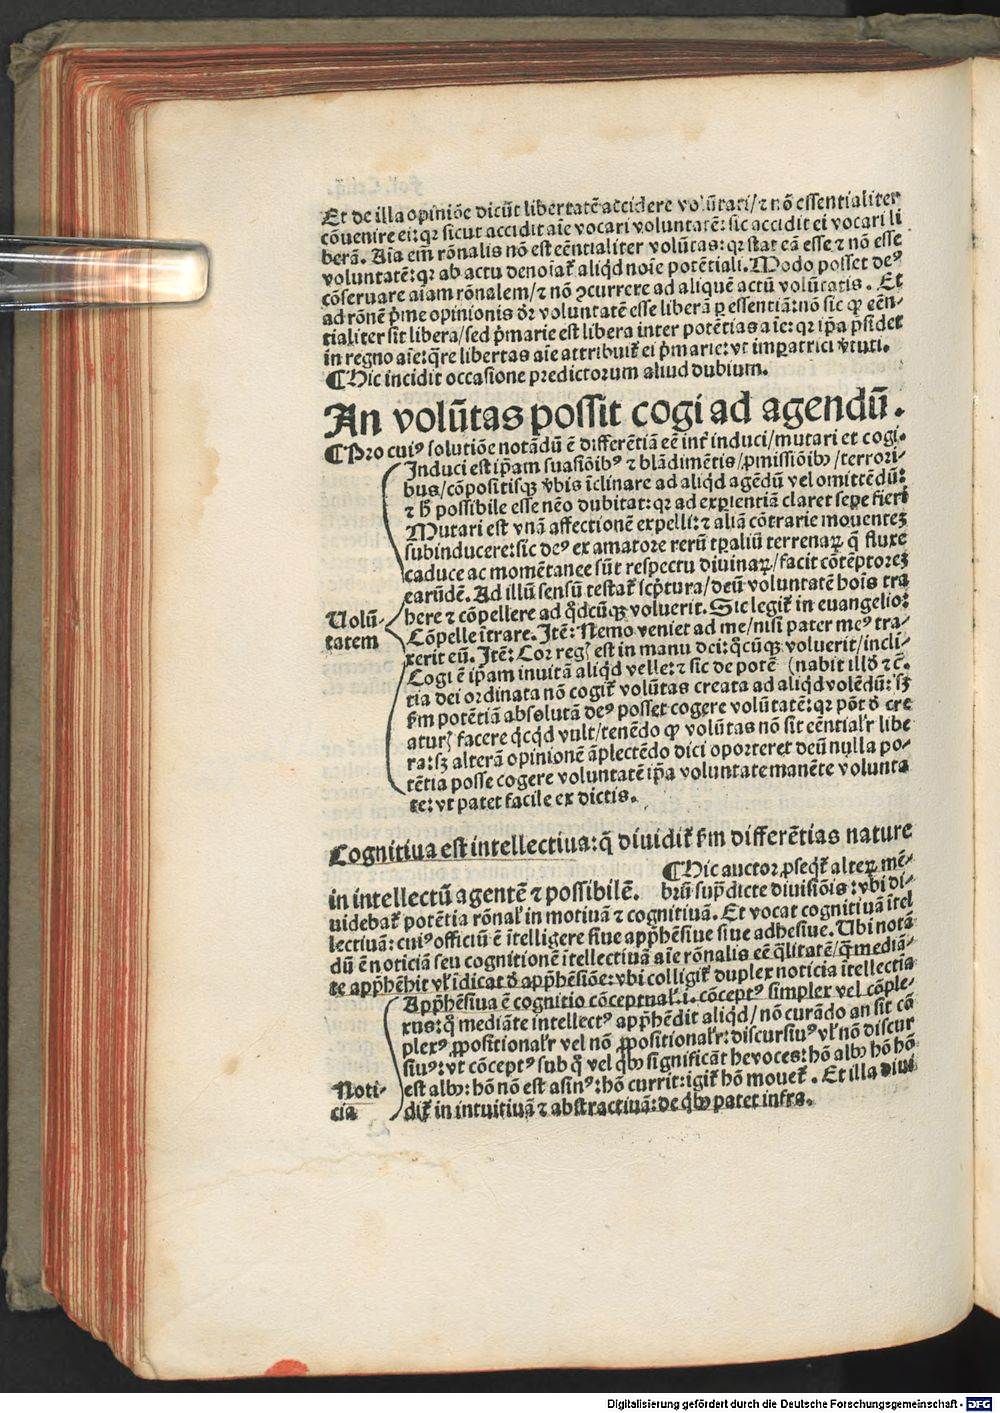 Et de illa opiniõe dicũt libertatẽ accidere volũtati/⁊ nõ essentialiter
cõuenire ei: qꝛ sicut accidit aĩe vocari voluntatẽ: sic accidit ei vocari li
berã. Aĩa em̃ rõnalis nõ est eẽntialiter volũtas: qꝛ stat eã esse ⁊ nõ esse
voluntatẽ: qꝛ ab actu denoĩat᷑ aliqd noĩe potẽtiali. Modo posset deꝰ
cõseruare aĩam rõnalem/⁊ nõ ꝯcurrere ad aliquẽ actũ volũtatis. Et
ad rõnẽ p̃me opinionis dr̃ voluntatẽ esse liberã ꝑ essentiã: nõ sic ꝙ eẽn-
tialiter sit libera/sed p̃marie est libera inter potẽtias aĩe: qꝛ ip̃a p̃sidet
in regno aĩe: q̃re libertas aĩe attribuit᷑ ei p̃marie: vt imꝑatrici v̓tuti.
¶ Hic incidit occasione predictorum aliud dubium.
An volũtas possit cogi ad agendũ.
¶ Pro cuiꝰ solutiõe notãdũ ẽ differẽtiã eẽ int̓ induci/mutari et cogi.
Induci est ip̃am suasiõibꝰ ⁊ blãdimẽtis/ꝓmissiõibꝫ/terrori-
bus/cõpositisqꝫ v̓bis ĩclinare ad aliqd agẽdũ vel omittẽdũ:
⁊ h̓ possibile esse nẽo dubitat: qꝛ ad exꝑientiã claret sepe fieri
Mutari est vnã affectionẽ expelli: ⁊ aliã cõtrarie mouentez
subinducere: sic deꝰ ex amatore rerũ tꝑaliũ terrenaꝝ q̃ fluxe
caduce ac momẽtanee sũt respectu diuinaꝝ/facit cõtẽptorez
earũdẽ. Ad illũ sensũ testat᷑ scp̃tura/deũ voluntatẽ hoĩs tra
Volũ-
tatem
here ⁊ cõpellere ad qd̓cũqꝫ voluerit. Sic legit᷑ in euangelio:
Cõpelle ĩtrare. Itẽ: Nemo veniet ad me/nisi pater meꝰ tra-
xerit eũ. Itẽ: Cor regꝭ est in manu dei: qcũqꝫ voluerit/incli-
Cogi ẽ ip̃am inuitã aliqd velle: ⁊ sic de potẽ (nabit illd̓ ⁊c̃.
tia dei ordinata nõ cogit᷑ volũtas creata ad aliqd volẽdũ: sꝫ
ẜm potẽtiã absolutã deꝰ posset cogere volũtatẽ: qꝛ põt d̓ cre
aturꝭ facere qcqd vult/tenẽdo ꝙ volũtas nõ sit eẽntialr̓ libe
ra: sꝫ alterã opinionẽ ãplectẽdo dici oporteret deũ nulla po-
tẽtia posse cogere voluntatẽ ip̃a voluntate manẽte volunta
te: vt patet facile ex dictis.
Cognitiua est intellectiua: q̃ diuidit᷑ ẜm differẽtias nature
in intellectũ agentẽ ⁊ possibilẽ.
¶ Hic auctor ꝓseqt᷑ alteꝝ mẽ-
brũ sup̃dicte diuisiõis: vbi di-
uidebat᷑ potẽtia rõnal̓ in motiuã ⁊ cognitiuã. Et vocat cognitiuã ĩtel
lectiuã: cuiꝰ officiũ ẽ ĩtelligere siue app̃hẽsiue siue adhesiue. Vbi notã
dũ ẽ noticiã seu cognitionẽ ĩtellectiuã aĩe rõnalis eẽ q̃litatẽ/q̃ mediã-
te app̃hẽdit vl̓ ĩdicat d̓ app̃hẽsiõe: vbi colligit᷑ duplex noticia ĩtellectia
Noti-
cia
App̃hẽsiua ẽ cognitio cõceptual̓.i. cõceptꝰ simplex vel cõple-
xus: q̃ mediãte intellectꝰ app̃hẽdit aliqd/nõ curãdo an sit cõ
plexꝰ, ꝓpositionalr̓ vel nõ ꝓpositionalr̓: discursiuꝰ vl̓ nõ discur
siuꝰ: vt cõceptꝰ sub q̃ vel qbꝫ significãt he voces: hõ albꝫ hõ hõ
est albꝫ: hõ nõ est asinꝰ: hõ currit: igit᷑ hõ mouet᷑. Et illa diui
dit᷑ in intuitiuã ⁊ abstractiuã: de qbꝫ patet infra.
Digitalisierung gefördert durch die Deutsche Forschungsgemeinschaft - DFG